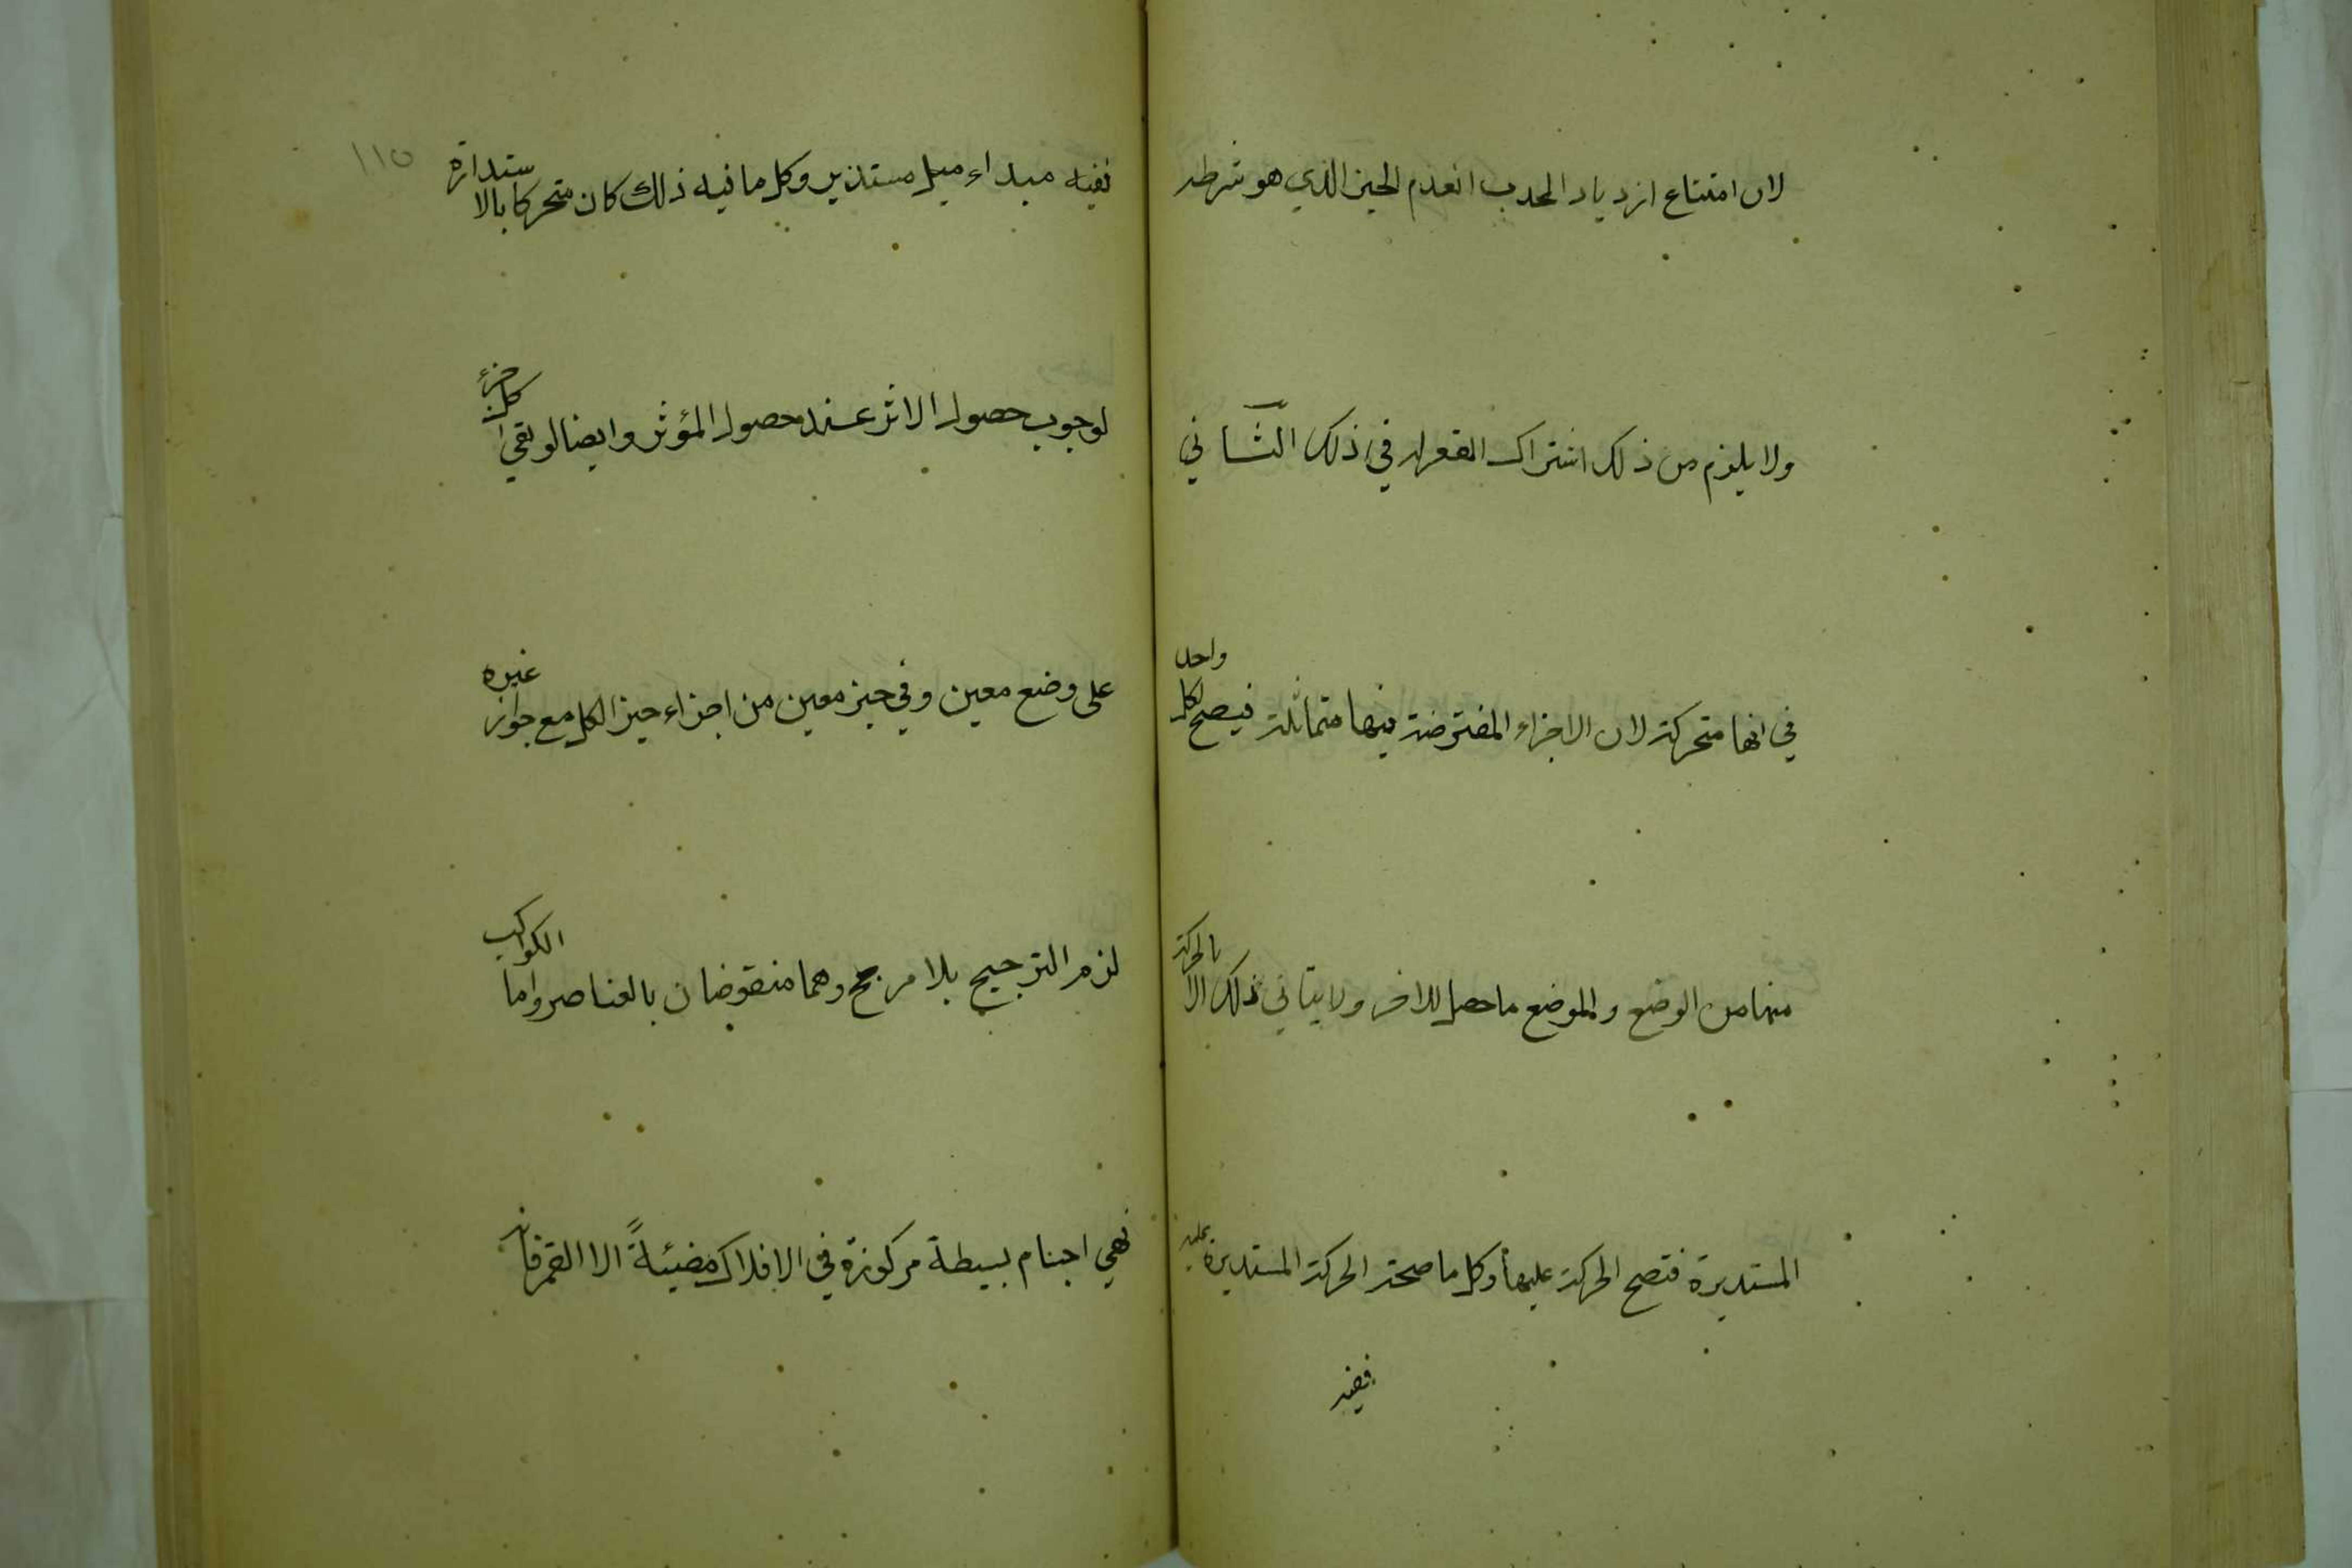 لان امتناع ازدياد المحدب انعدم الحيز الذي هو شرطه
ولا يلزم من ذلك اشتراك المقعر له في ذلك الثاني
في انها متحركة لان الاجزاء المفترضة فيها متماثلة فيصح لكل واحد
منها من الوضع والموضع ما حصل للاخر ولا يتاتي ذلك الا بالحركة
المستديرة فتصح الحركة عليها وكل ما صحة الحركة المستديرة عليه
ففيه
١١٥
ففيه مبداء ميل مستدير وكل ما فيه ذلك كان متحركا بالاستدارة
لوجوب حصول الاثر عند حصول المؤثر وايضا لو بقي كل جزء
على وضع معين وفي حيز معين من اجزاء حيز الكل مع جواز غيره
لزم الترجيح بلا مرجح وهما منقوضان بالعناصر واما الكواكب
فهي اجسام بسيطة مركوزة في الافلاك مضيئةً الا القمر فانه